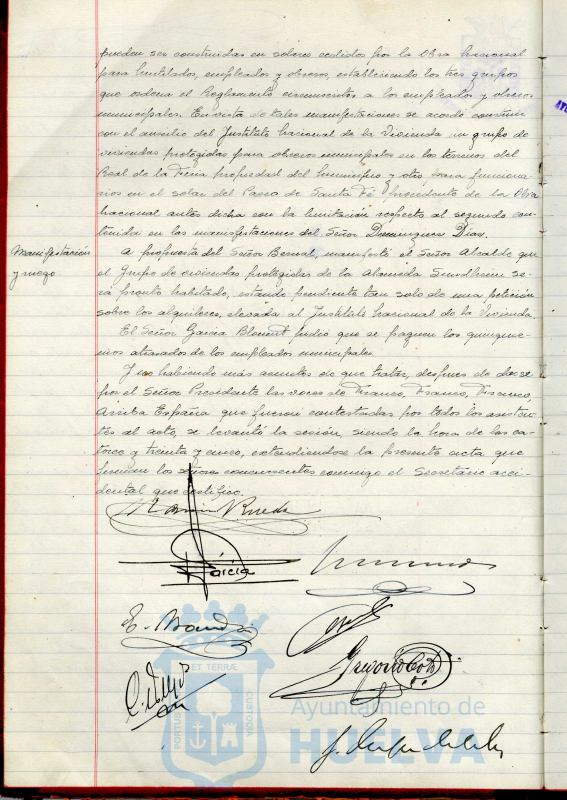 pueden ser construidas en solares cedidos por la Obra Nacional
para humildes, empleados y obreros, estableciendo los tres grupos
que ordena el Reglamento concerniente a los empleados y obreros
municipales. En vista de tales manifestaciones se acordó construir
con el auxilio del Instituto Nacional de la Vivienda un grupo de
viviendas protegidas para obreros municipales en los terrenos del
Real de la Feria propiedad del Municipio y otro para funciona-
rios en el solar del Paseo de Santa Fé procedente de la Obra
Nacional antes dicha con la limitación respecto al segundo con-
tenida en las manifestaciones del Señor Domínguez Díaz.
Manifestación
y ruego
A propuesta del Señor Bernal, manifestó el Señor Alcalde que
el Grupo de viviendas protegidas de la Alameda Sundheim se-
rá pronto habitado, estando pendiente tan solo de una petición
sobre los alquileres, elevada al Instituto Nacional de la Vivienda.
El Señor García pidió que se paguen los quinque-
nios atrasados de los empleados municipales.
Y no habiendo más asuntos de que tratar, después de darse
por el Señor Presidente las voces de Franco, Franco, Franco,
Arriba España que fueron contestadas por todos los asisten-
tes al acto, se levantó la sesión, siendo la hora de las ca-
torce y treinta y cinco, extendiéndose la presente acta que
firman los señores concurrentes conmigo el Secretario acci-
dental que certifico.
Rueda
García
PORTUS
ET TERRAE
CUSTODIA
Ayuntamiento de
HUELVA